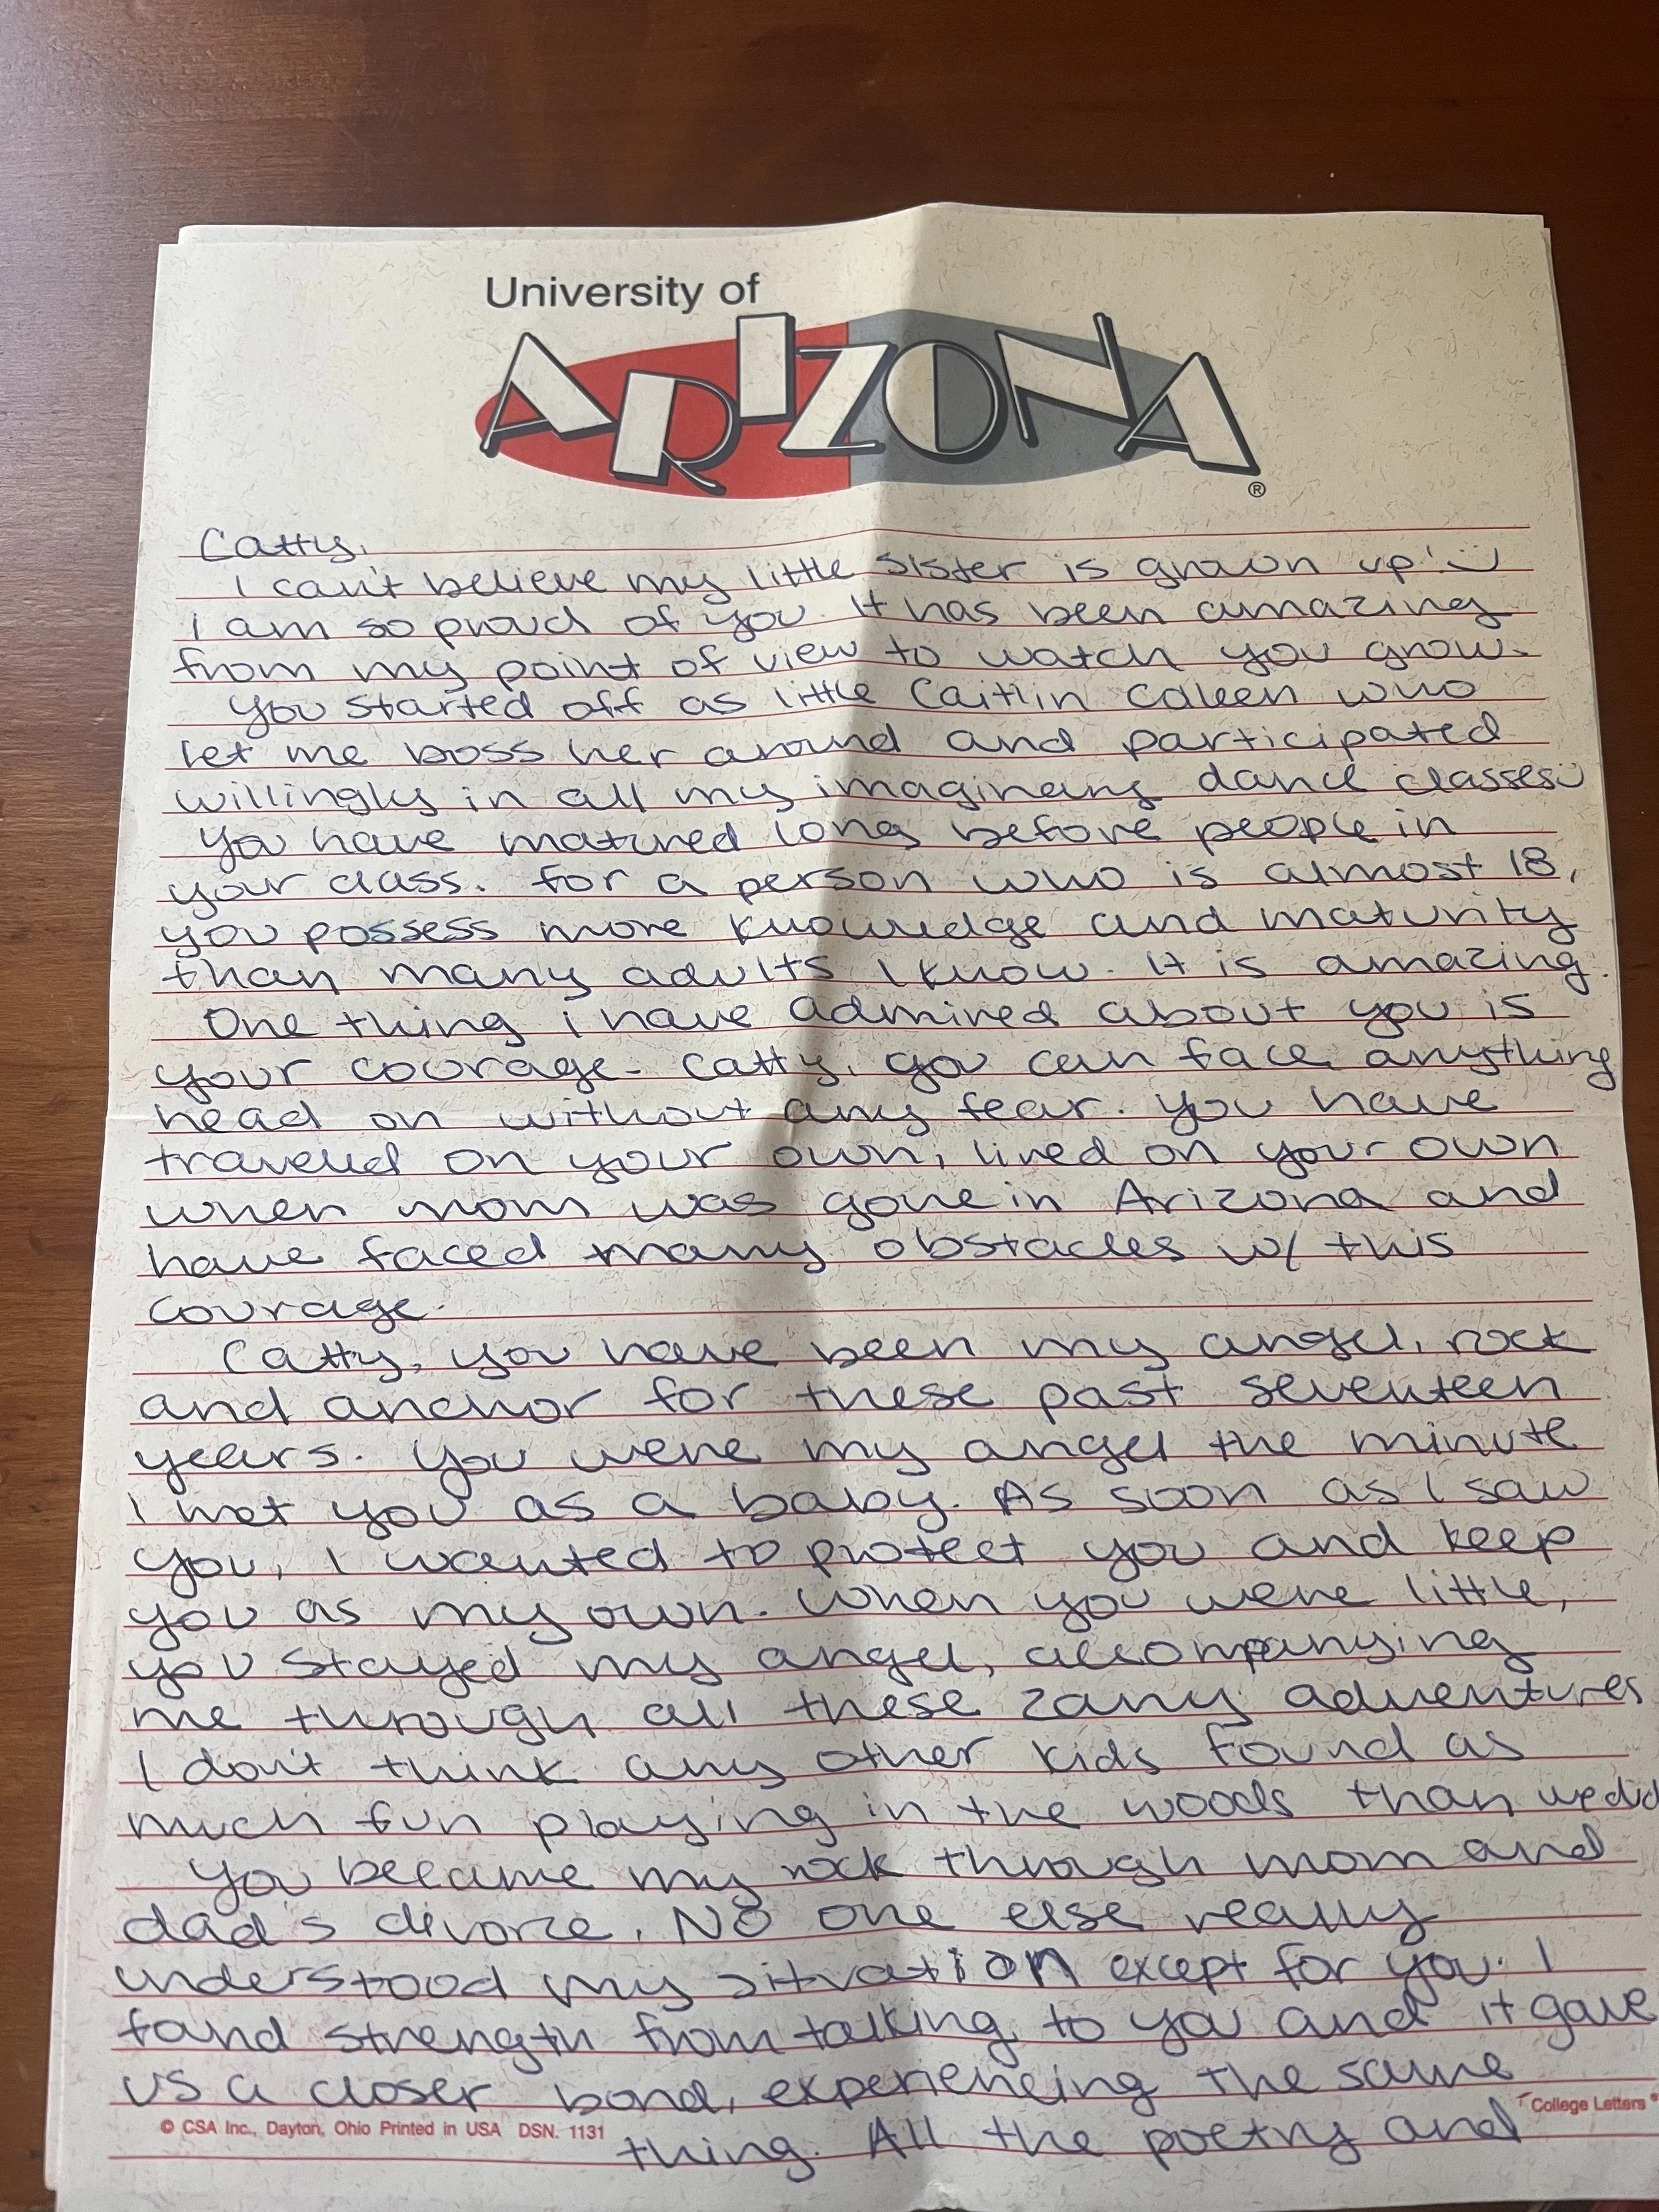 University of
ARIZONA®
Catty,
I can't believe my little sister is grown up! :)
I am so proud of you. It has been amazing
from my point of view to watch you grow.
You started off as little Caitlin Coleen who
let me boss her around and participated
willingly in all my imaginary dance classes :)
You have matured long before people in
your class. For a person who is almost 18,
you possess more knowledge and maturity
than many adults I know. It is amazing.
One thing i have admired about you is
your courage. Catty, you can face anything
head on without any fear. You have
traveled on your own, lived on your own
when mom was gone in Arizona and
have faced many obstacles w/ this
courage.
Catty, you have been my angel, rock
and anchor for these past seventeen
years. You were my angel the minute
I met you as a baby. As soon as I saw
you, I wanted to protect you and keep
you as my own. When you were little,
you stayed my angel, accompanying
me through all these zany adventures
I don't think any other kids found as
much fun playing in the woods than we did
You became my rock through mom and
dad's divorce. No one else really
understood my situation except for you. I
found strength from talking to you and it gave
us a closer bond, experiencing the same
© CSA Inc., Dayton, Ohio Printed in USA DSN. 1131
College Letters®
thing. All the poetry and